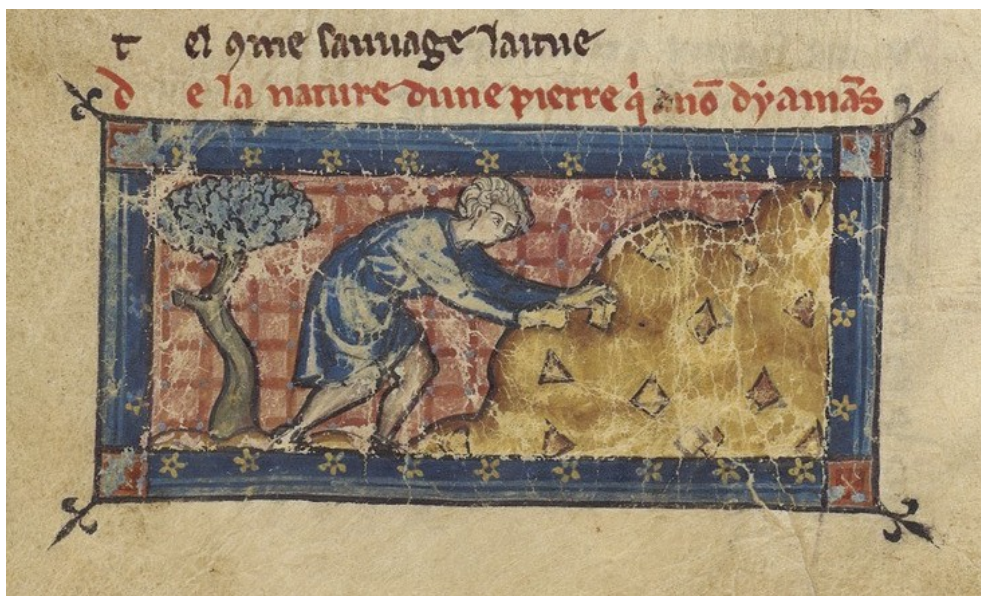 t el ꝯme sauuage laitue
d e la nature dune pierre qͥ a nō dẏamās